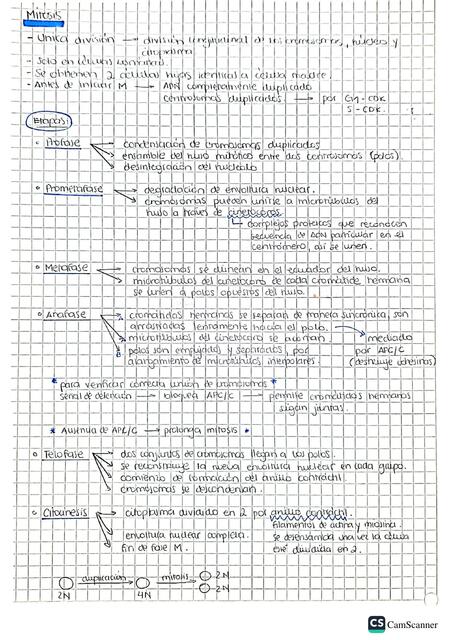 Mitosis
- Única división → división longitudinal de los cromosomas, núcleo y
citoplasma
- Solo en células somáticas.
- Se obtienen 2 células hijas idénticas a célula madre.
- Antes de iniciar M → ADN completamente duplicado
centrosomas duplicados → por G1-CDK
S-CDK.
Etapas:
○ Profase → condensación de cromosomas duplicados
ensamble del huso mitótico entre dos centrosomas (polos)
desintegración del nucleolo
○ Prometafase → degradación de envoltura nuclear.
cromosomas pueden unirse a microtúbulos del
huso a través de cinetocoros.
↳ complejos proteicos que reconocen
secuencia de ADN particular en el
centrómero, ahí se unen.
○ Metafase → cromosomas se alinean en el ecuador del huso.
microtúbulos del cinetocoro de cada cromátide hermana
se unen a polos opuestos del huso.
○ Anafase → cromátidas hermanas se separan de manera sincrónica, son
arrastradas lentamente hacia el polo.
microtúbulos del cinetocoro se acortan. mediado
polos son empujados y separados, por por APC/C
alargamiento de microtúbulos interpolares. (destruye cohesinas)
* para verificar correcta unión de cromosomas *
señal de detención → bloquea APC/C → permite cromátidas hermanas
sigan juntas.
* Ausencia de APC/C → prolonga mitosis *
○ Telofase → dos conjuntos de cromosomas llegan a los polos.
se reconstruye la nueva envoltura nuclear en cada grupo.
comienzo de formación del anillo contráctil.
cromosomas se descondensan.
○ Citocinesis → citoplasma dividido en 2 por anillo contráctil.
filamentos de actina y miosina.
envoltura nuclear completa. se desensambla una vez la célula
fin de fase M. esté dividida en 2.
duplicación mitosis 2N
2N 4N 2N
CS CamScanner